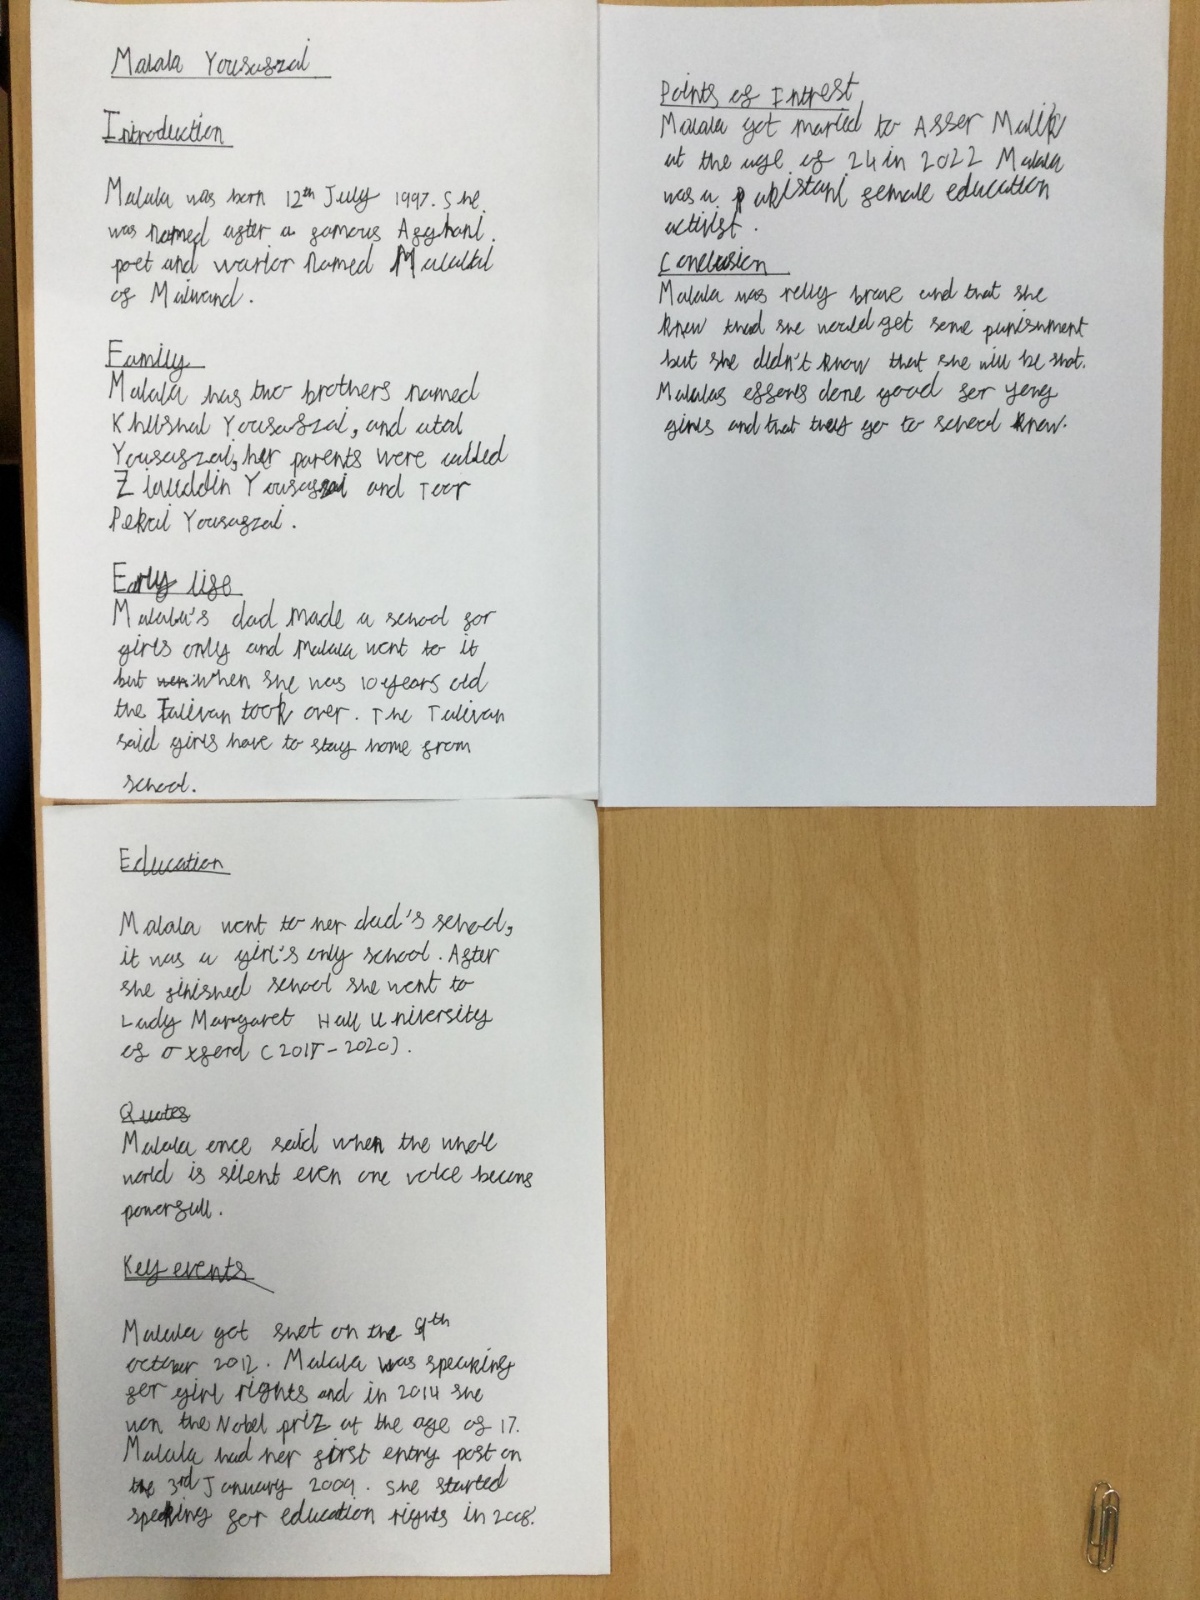 Malala Yousafzai
Introduction
Malala was born 12th July 1997. She
was named after a famous Afghani
poet and warior named Malalai
of Maiwand.
Family
Malala has two brothers named
Khushal Yousafzai, and atal
Yousafzai, her parents were called
Ziauddin Yousafzai and Toor
Pekai Yousafzai.
Early life
Malala's dad made a school for
girls only and Malala went to it
but when she was 10 years old
the Talivan took over. The Talivan
said girls have to stay home from
school.
Education
Malala went to her dad's school,
it was a girl's only school. After
she finished school she went to
Lady Margaret Hall University
of oxford (2017-2020).
Quotes
Malala once said when the whole
world is silent even one voice becoms
powerfull.
Key events
Malala got shot on the 9th
october 2012. Malala was speaking
for girl rights and in 2014 she
won the Nobel priz at the age of 17.
Malala had her first entry post on
the 3rd January 2009. she started
speaking for education rights in 2008.
Points of Intrest
Malala got maried to Asser Malik
at the age of 24 in 2022 Malala
was a pakistani female education
activist.
Conclusion
Malala was relly brave and that she
knew that she would get some punishment
but she didn't know that she will be shot.
Malalas efforts done good for yong
girls and that they go to school know.